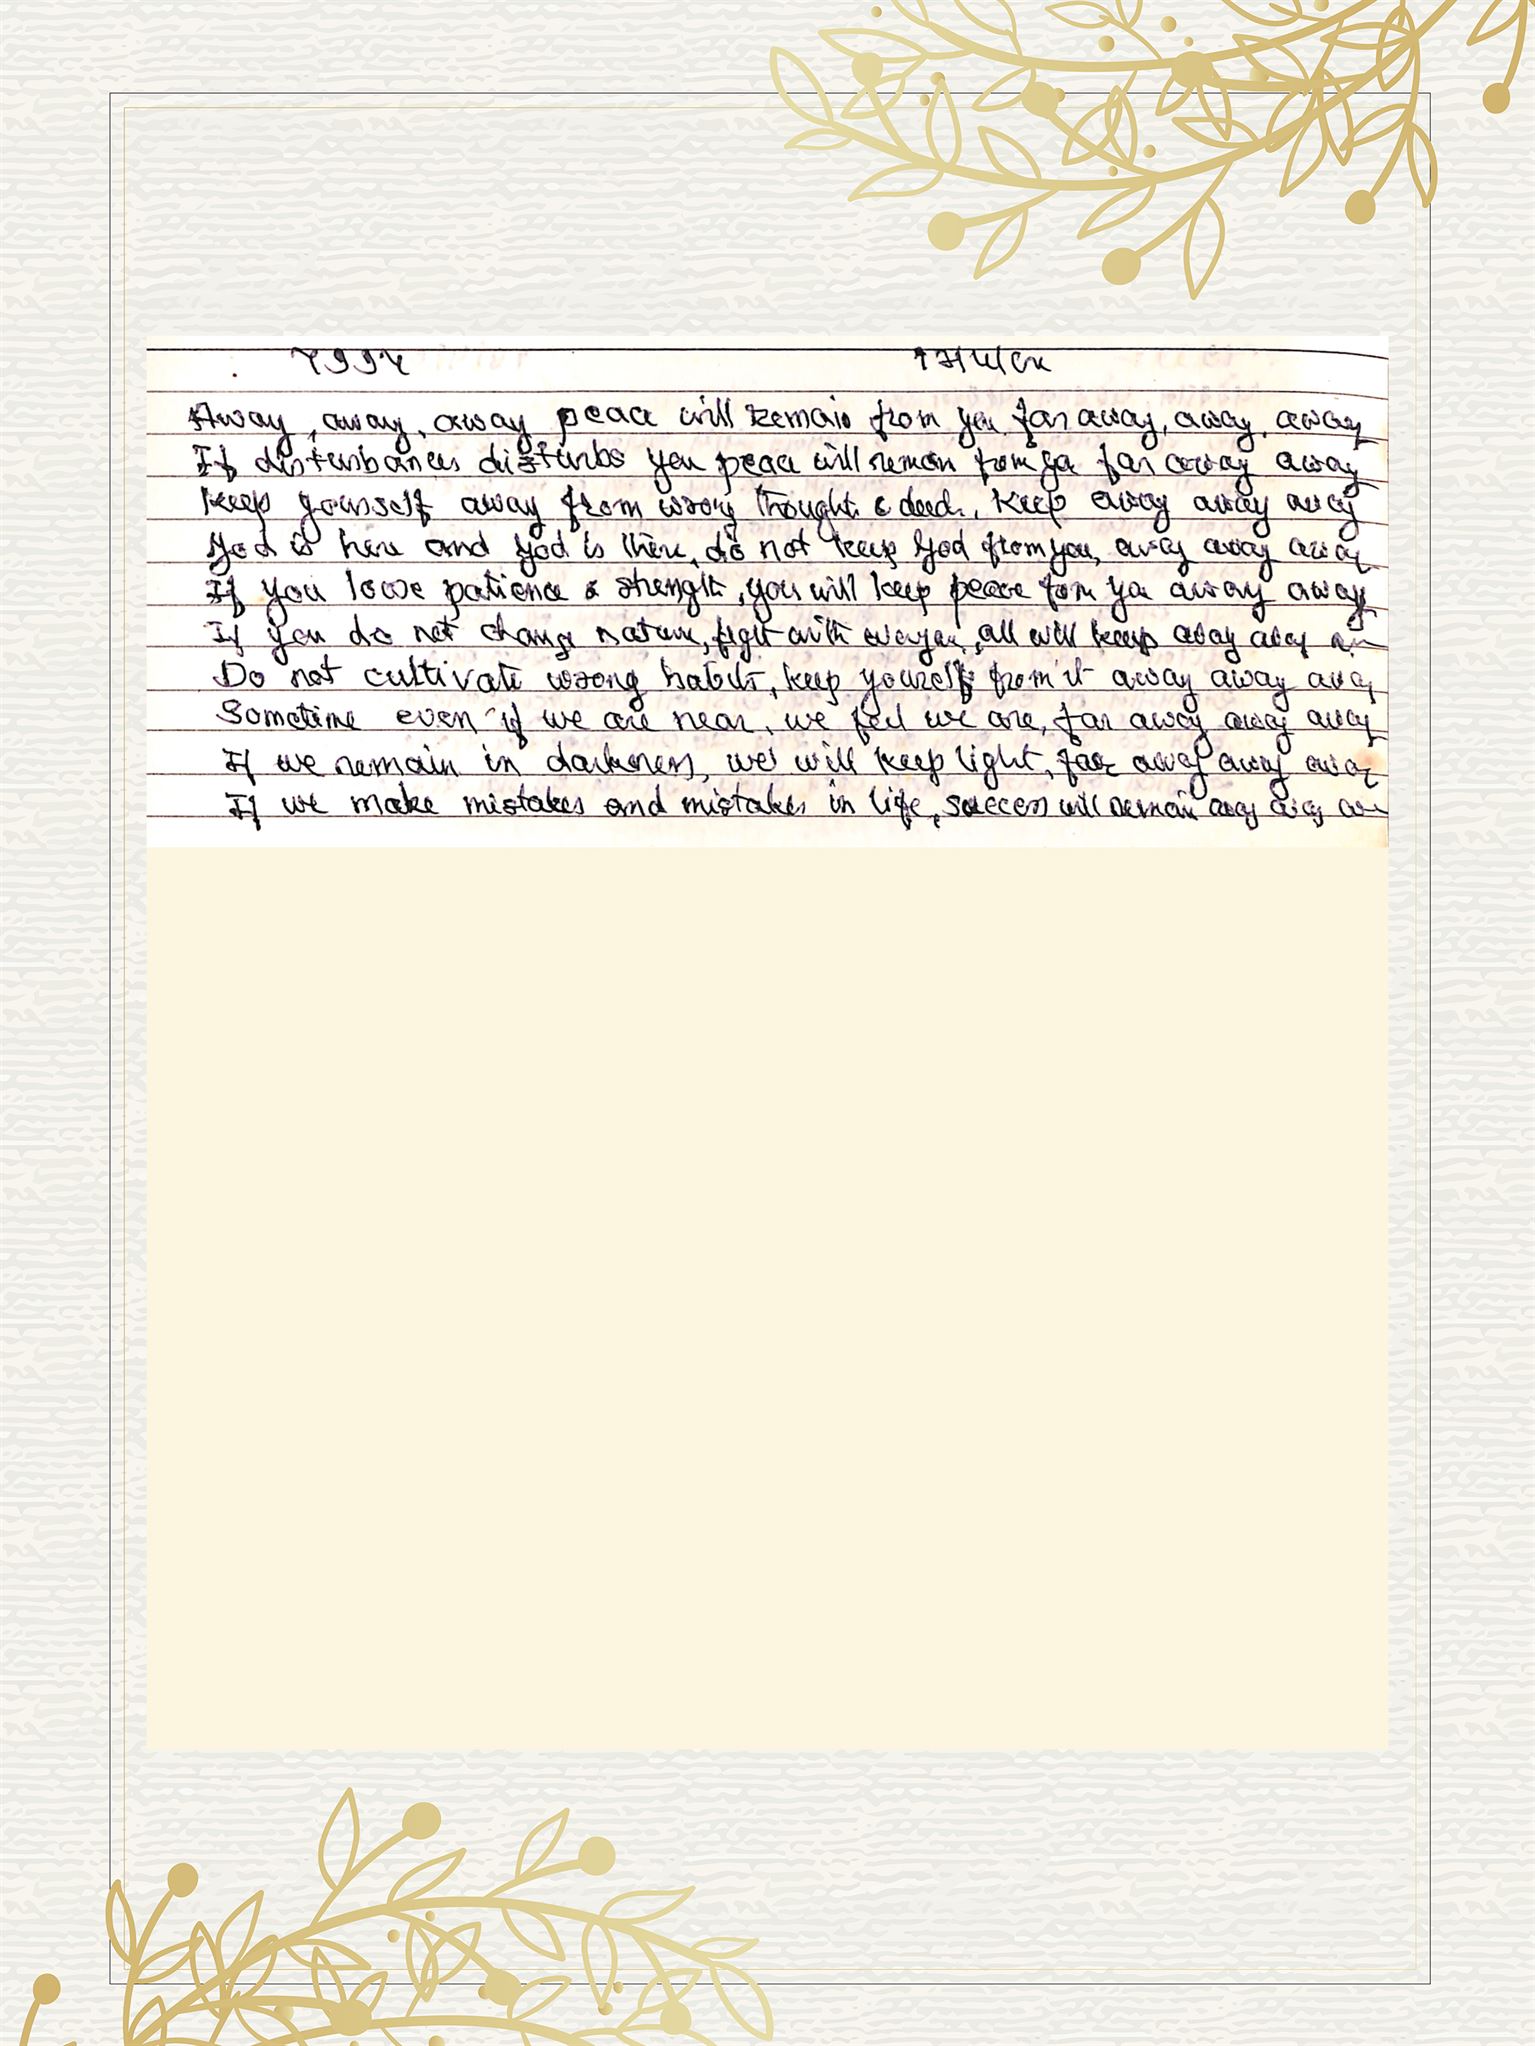 Away, away, away peace will remain from you far away, away, away
If disturbances disturbs you peace will remain from you far away away
Keep yourself away from wrong thought & deed, keep away away away
God is here and God is there, do not keep God from you, away away away
If you loose patience & strength, you will keep peace from you away away
If you do not change nature, fight with everyone, all will keep away away
Do not cultivate wrong habits, keep yourself from it away away away
Sometime even if we are near, we feel we are, far away away away
If we remain in darkness, we will keep light, far away away away
If we make mistakes and mistakes in life, success will remain away away